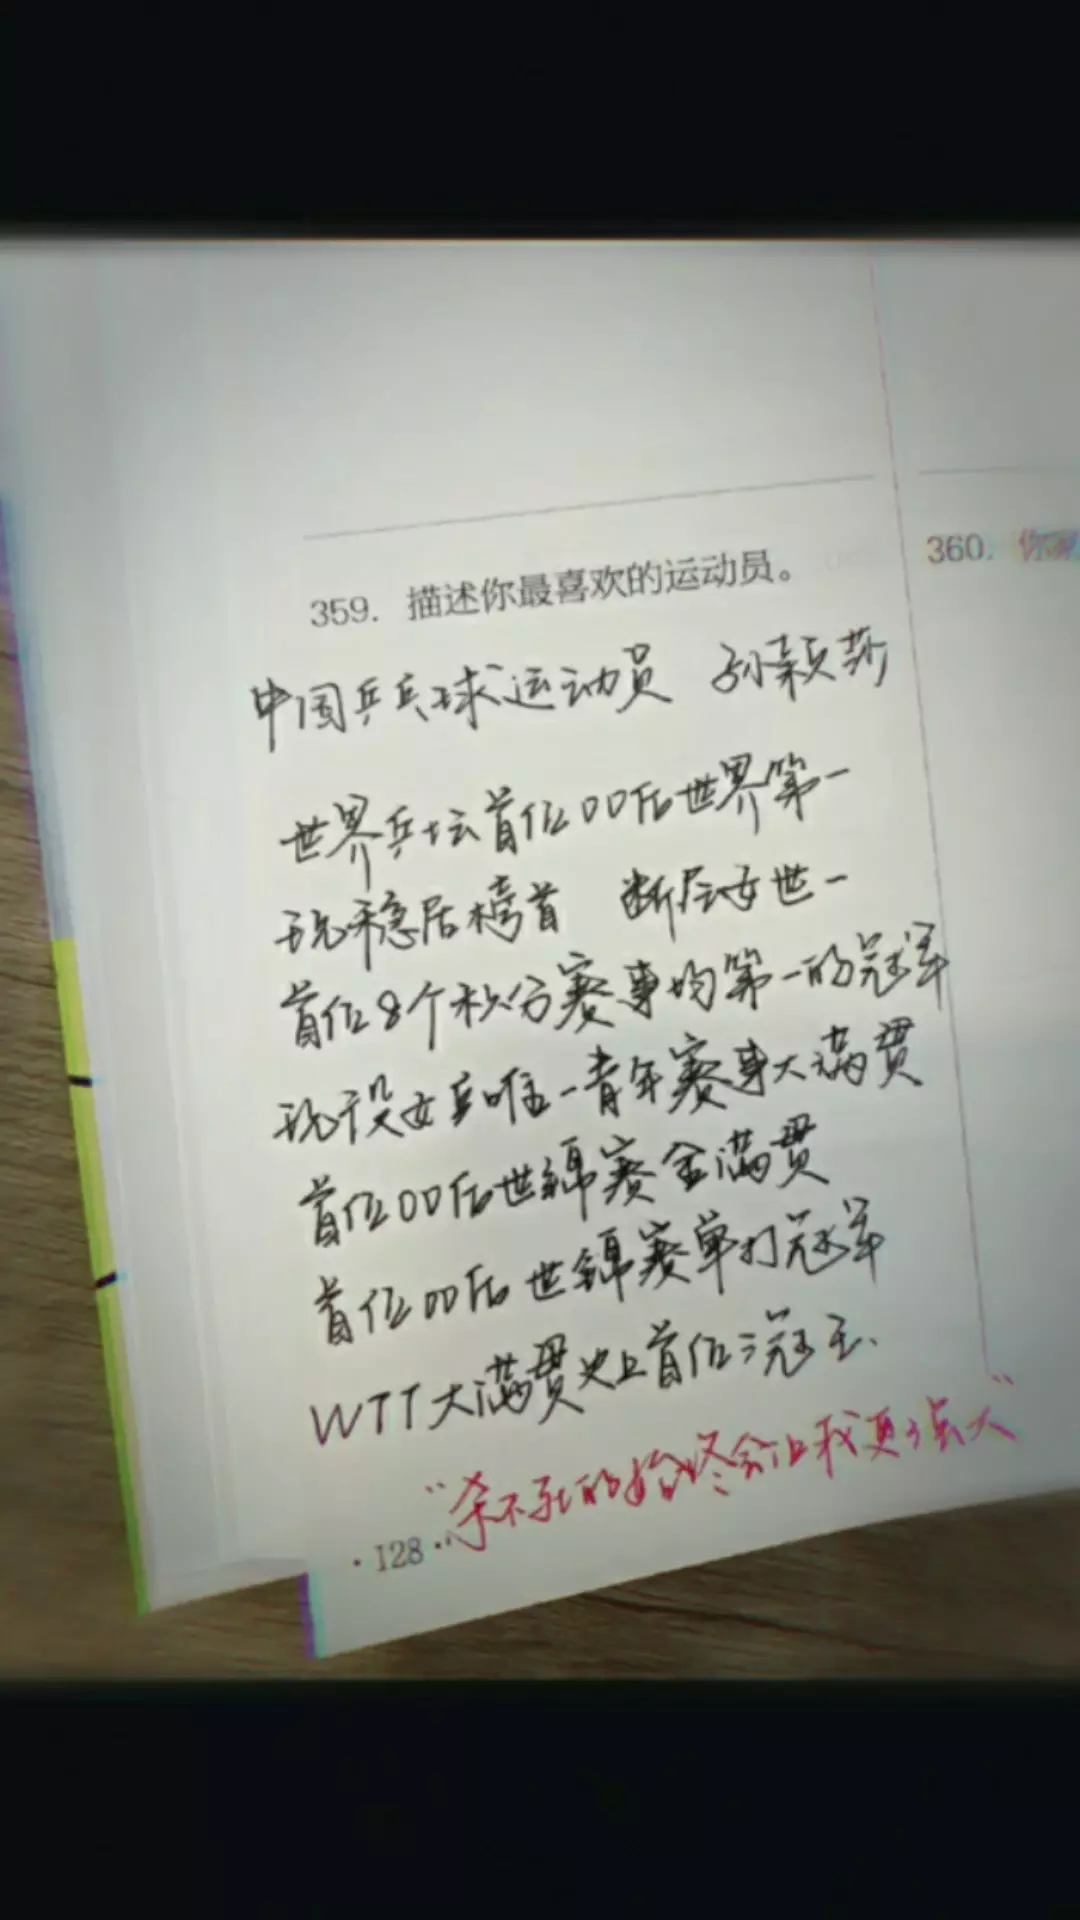 359. 描述你最喜欢的运动员。
360.
中国乒乓球运动员 孙颖莎
世界乒坛首位00后世界第一
现稳居榜首 断层女世一
首位8个积分赛事均第一的冠军
现役女乒唯一青年赛事大满贯
首位00后世锦赛金满贯
首位00后世锦赛单打冠军
WTT大满贯史上首位三冠王、
“杀不死的始终会让我更强大”
·128·